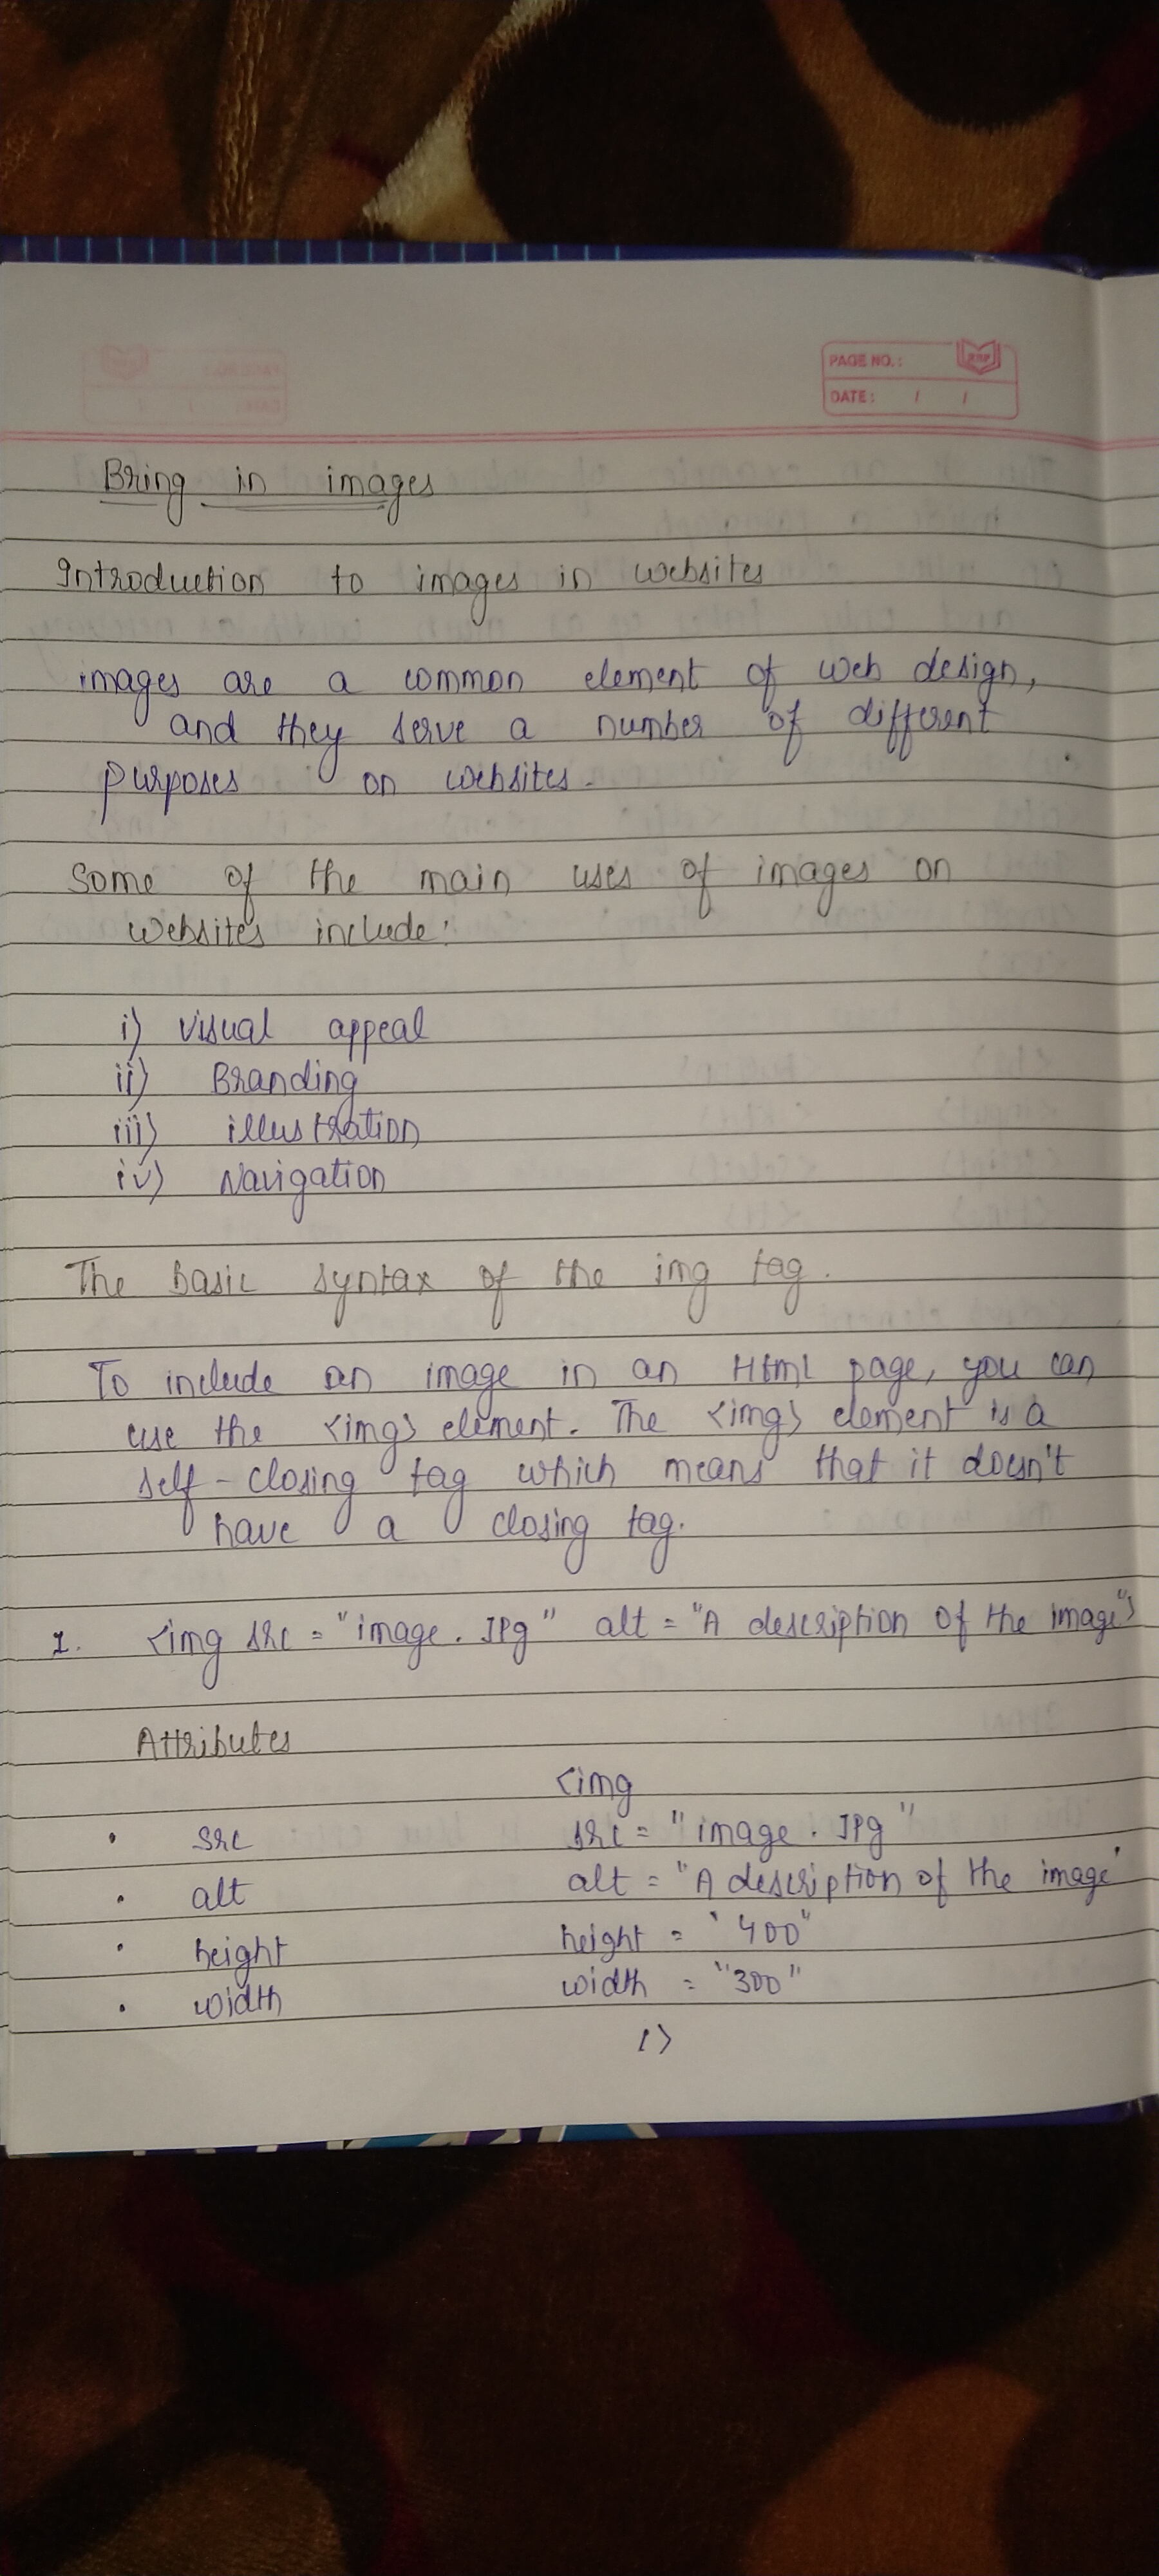 PAGE NO.:
DATE: / /
Bring in images
Introduction to images in websites
images are a common element of web design,
and they serve a number of different
purposes on websites.
Some of the main uses of images on
websites include:
i) visual appeal
ii) Branding
iii) illustration
iv) Navigation
The basic syntax of the img tag.
To include an image in an Html page, you can
use the <img> element. The <img> element is a
self-closing tag which means that it doesn't
have a closing tag.
1. <img src = "image.JPg" alt = "A description of the image">
Attributes
<img
• src src = "image.JPg"
• alt alt = "A description of the image"
• height height = "400"
• width width = "300"
/>